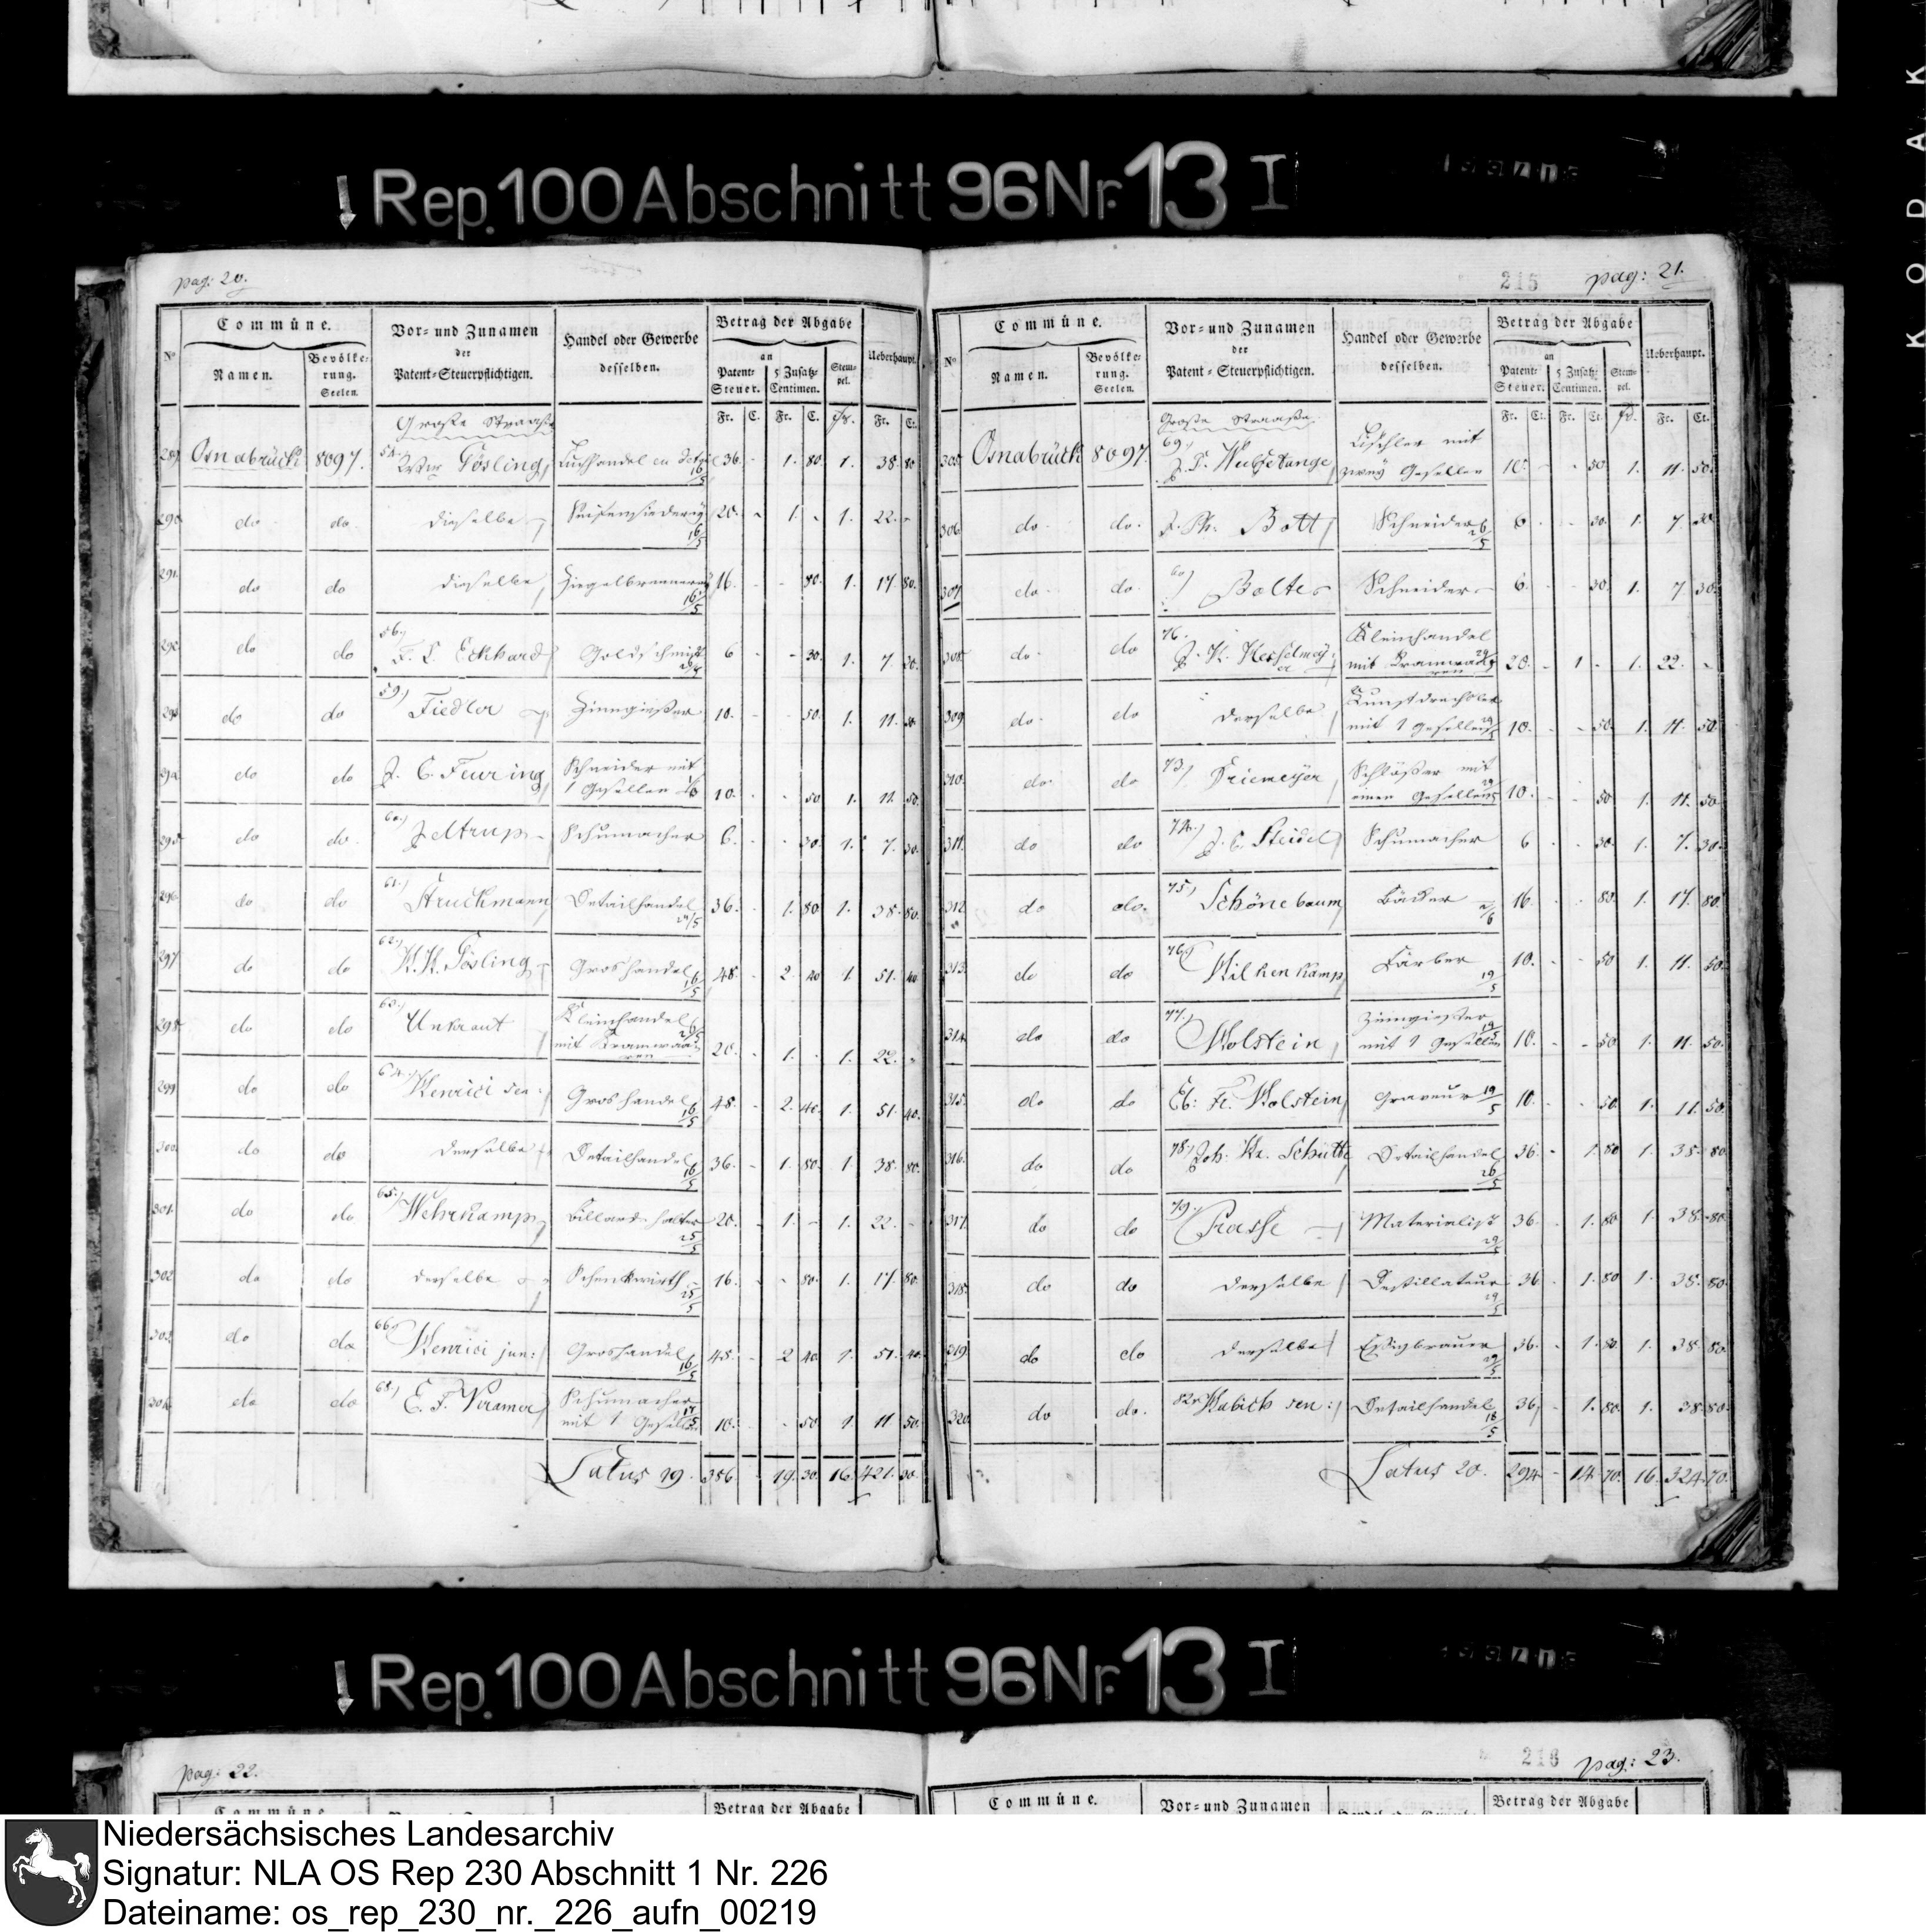 KODAK
Rep. 100 Abschnitt 96 Nr. 13 I
pag: 20.
Commüne.
Vor- und Zunamen
der
Patent-Steuerpflichtigen.
Handel oder Gewerbe
desselben.
Betrag der Abgabe
Ueberhaupt.
No
Namen.
Bevölke-
rung.
Seelen.
an
Patent-
Steuer.
5 Zusatz-
Centimen.
Stem-
pel.
Fr. C. Fr. C. Fr. Fr. Ct.
Große Straaße
289. Osnabrück 8097. Gösling, Tuchhandel en 16/5 36. - 1. 80. 1. 38. 80
290. do do dieselbe Seifensiederey 16/5 20. - 1. - 1. 22. -
291. do do dieselbe Ziegelbrennerey 16/5 16. - - 80. 1. 17 80.
292. do do 56. Eckhard Goldschmidt 6 - - 30. 1. 7. 30.
293. do do 59.) Fiedler Zinngießer 10. - - 50. 1. 11. 50.
294. do do J. C. Feuring Schneider mit
1 Gesellen 10. - - 50 1. 11. 50.
295. do do 60.) Jeltrup Schumacher 6. - - 30. 1. 7. 30.
296. do do 61.) Struckmann Detailhandel 36. - 1. 80 1. 38. 80.
297 do do 62.) Gösling Groshandel 16/5 48 - 2. 40 1 51. 40
298. do do 63.) Unkraut Kleinhandel
mit Kramwaa-
ren 20. - 1. - 1. 22. -
299 do do 64.) Henrici sen: Groshandel 16/5 48. - 2. 40. 1. 51. 40.
300. do do derselbe Detailhandel 16/5 36. - 1. 80. 1. 38. 80.
301. do do 65.) Wehrkamp Billard-halter 25/5 20. - 1. - 1. 22. -
302 do do derselbe Schenkwirth 25/5 16. - - 80. 1. 17. 80.
303. do do 66.) Henrici jun: Groshandel 16/5 48. - 2 40 1. 51. 40.
304. do do 68.) E. F. Kramer Schumacher
mit 1 Gesellen 10. - - 50 1. 11 50.
Latus 19. 386 - 19. 30. 16. 421. 30.
215
pag: 21.
Commüne.
Vor- und Zunamen
der
Patent-Steuerpflichtigen.
Handel oder Gewerbe
desselben.
Betrag der Abgabe
Ueberhaupt.
No
Namen.
Bevölke-
rung.
Seelen.
an
Patent-
Steuer.
5 Zusatz-
Centimen.
Stem-
pel.
Fr. Ct. Fr. Ct. Fr. Fr. Ct.
Große Straaße.
305. Osnabrück 8097. 69.) Tischler mit
zwey Gesellen 10. - - 50. 1. 11. 50.
306. do do. J. Ph. Bott Schneider 26/5 6 - - 30. 1. 7 30
307. do do. Bolte Schneider 6. - - 30. 1. 7. 30.
308. do do Hesselmey-
er Kleinhandel
mit Kramwaa-
ren 20. - 1 - 1. 22. -
309 do. do derselbe Kunstdrechsler
mit 1 Gesellen 10. - - 50. 1. 11. 50.
310. do do 73.) Driemeyer Schlößer mit
einen Gesellen 10. - - 50 1. 11. 50.
311. do do 74.) J. C. Steidel Schumacher 6 - - 30. 1. 7. 30.
312. do do. 75.) Schönebaum Bäcker 16. - - 80. 1. 17. 80.
313. do do 76.) Wilkenkamp Färber 19/5 10. - - 50 1. 11. 50.
314. do do 77.) Holstein Zinngießer
mit 1 Gesellen 19/5 10. - - 50 1. 11. 50.
315. do do Eb: Fr. Holstein Graveur 19/5 10. - - 50. 1. 11. 50.
316. do do 78.) Joh: Hr. Schütte Detailhandel 26/5 36. - 1. 80 1. 38. 80.
317. do do 79.) Prasse Materialist 29/5 36. 1. 80 1. 38. 80.
318. do do derselbe Destillateur 29/5 36 - 1. 80 1. 38. 80.
319 do do derselbe Essigbrauer 29/5 36. - 1. 80. 1. 38 80.
320. do do. Habich sen: Detailhandel 18/5 36. 1. 80. 1. 38. 80.
Latus 20. 294 - 14. 70. 16. 324. 70.
Rep. 100 Abschnitt 96 Nr. 13 I
pag: 22.
Commüne.
Betrag der Abgabe
216
pag: 23.
Commüne.
Vor- und Zunamen
Betrag der Abgabe
Niedersächsisches Landesarchiv
Signatur: NLA OS Rep 230 Abschnitt 1 Nr. 226
Dateiname: os_rep_230_nr._226_aufn_00219